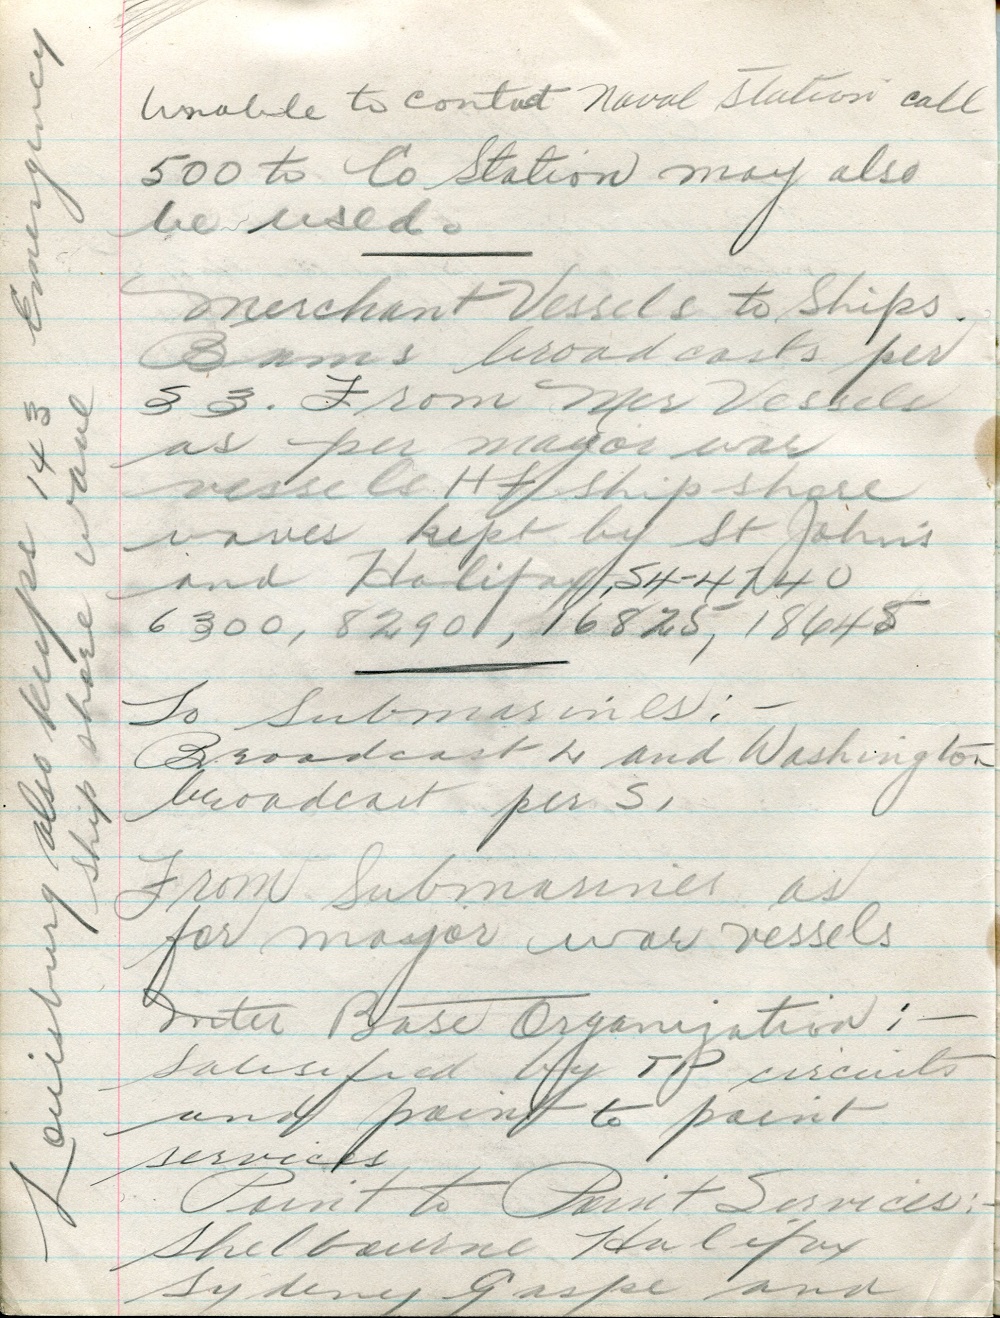 Unable to contact Naval Station call
500 to Co Station may also
be used.
Merchant Vessels to Ships.
Bams broadcasts per
§ 3. From Mer Vessels
as per mayor war
vessels HF ship shore
waves kept by St John's
and Halifax, 54-4740
6300, 8290, 16825, 18645
To Submarines:-
Broadcast L and Washington
broadcast per S,
From Submarines as
for mayor war vessels
Inter Base Organization:-
by TP circuits
and point to point
services
Point to Point Services:-
Shelbourne Halifax
Sydeny Gaspe and
Louisburg also keeps 143 Emergency
ship shore wave